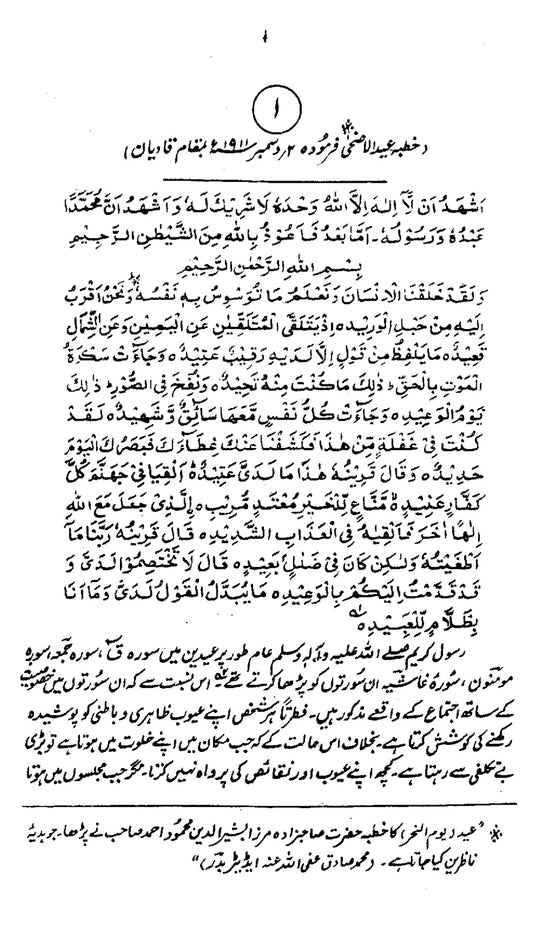 ۱
۱
(خطبہ عید الاضحیٰ٭ فرمودہ ۲؍دسمبر ۱۹۱۱ء بمقام قادیان)
اَشْهَدُ اَنْ لَّآ اِلٰهَ اِلَّا اللّٰهُ وَحْدَهٗ لَا شَرِيْكَ لَهٗ وَ اَشْهَدُ اَنَّ مُحَمَّدًا
عَبْدُهٗ وَرَسُوْلُهٗ۔ اَمَّا بَعْدُ فَاَعُوْذُ بِاللّٰهِ مِنَ الشَّيْطٰنِ الرَّجِيْمِ
بِسْمِ اللّٰهِ الرَّحْمٰنِ الرَّحِيْمِ
وَلَقَدْ خَلَقْنَا الْاِنْسَانَ وَنَعْلَمُ مَا تُوَسْوِسُ بِهٖ نَفْسُهٗ وَنَحْنُ اَقْرَبُ
اِلَيْهِ مِنْ حَبْلِ الْوَرِيْدِ ٥ اِذْ يَتَلَقَّى الْمُتَلَقِّيٰنِ عَنِ الْيَمِيْنِ وَعَنِ الشِّمَالِ
قَعِيْدٌ ٥ مَا يَلْفِظُ مِنْ قَوْلٍ اِلَّا لَدَيْهِ رَقِيْبٌ عَتِيْدٌ ٥ وَجَآءَتْ سَكْرَةُ
الْمَوْتِ بِالْحَقِّ ؕ ذٰلِكَ مَا كُنْتَ مِنْهُ تَحِيْدُ ٥ وَنُفِخَ فِى الصُّوْرِ ؕ ذٰلِكَ
يَوْمُ الْوَعِيْدِ ٥ وَجَآءَتْ كُلُّ نَفْسٍ مَّعَهَا سَآئِقٌ وَّ شَهِيْدٌ ٥ لَقَدْ
كُنْتَ فِىْ غَفْلَةٍ مِّنْ هٰذَا فَكَشَفْنَا عَنْكَ غِطَآءَكَ فَبَصَرُكَ الْيَوْمَ
حَدِيْدٌ ٥ وَقَالَ قَرِيْنُهٗ هٰذَا مَا لَدَىَّ عَتِيْدٌ ٥ اَلْقِيَا فِىْ جَهَنَّمَ كُلَّ
كَفَّارٍ عَنِيْدٍ ٥ مَّنَّاعٍ لِّلْخَيْرِ مُعْتَدٍ مُّرِيْبٍ ٥ اِلَّذِىْ جَعَلَ مَعَ اللّٰهِ
اِلٰهًا اٰخَرَ فَاَلْقِيٰهُ فِى الْعَذَابِ الشَّدِيْدِ ٥ قَالَ قَرِيْنُهٗ رَبَّنَا مَآ
اَطْغَيْتُهٗ وَلٰكِنْ كَانَ فِىْ ضَلٰلٍ بَعِيْدٍ ٥ قَالَ لَا تَخْتَصِمُوْا لَدَىَّ وَ
قَدْ قَدَّمْتُ اِلَيْكُمْ بِالْوَعِيْدِ ٥ مَا يُبَدَّلُ الْقَوْلُ لَدَىَّ وَمَآ اَنَا
بِظَلَّامٍ لِّلْعَبِيْدِ ٥ ؎۱
رسول کریم صلے اللہ علیہ وآلہ وسلم عام طور پر عیدین میں سورہ قٓ، سورہ جمعہ، سورہ
مومنون، سورۂ غاشیہ ان سورتوں کو پڑھا کرتے تھے ؎۲ اس نسبت سے کہ ان سورتوں میں خصوصیت
کے ساتھ اجتماع کے واقعے مذکور ہیں۔ فطرتاً ہر شخص اپنے عیوب ظاہری و باطنی کو پوشیدہ
رکھنے کی کوشش کرتا ہے۔ بخلاف اس حالت کے کہ جب مکان میں اپنے خلوت میں ہوتا ہے تو بڑی
بے تکلفی سے رہتا ہے۔ کچھ اپنے عیوب اور نقائص کی پرواہ نہیں کرتا۔ مگر جب مجلسوں میں ہوتا
٭ "عید (یوم النحر) کا خطبہ حضرت صاحبزادہ مرزا بشیر الدین محمود احمد صاحب نے پڑھا۔ جو ہدیۂ
ناظرین کیا جاتا ہے۔ (محمد صادق عفی اللہ عنہ ایڈیٹر بدر)"